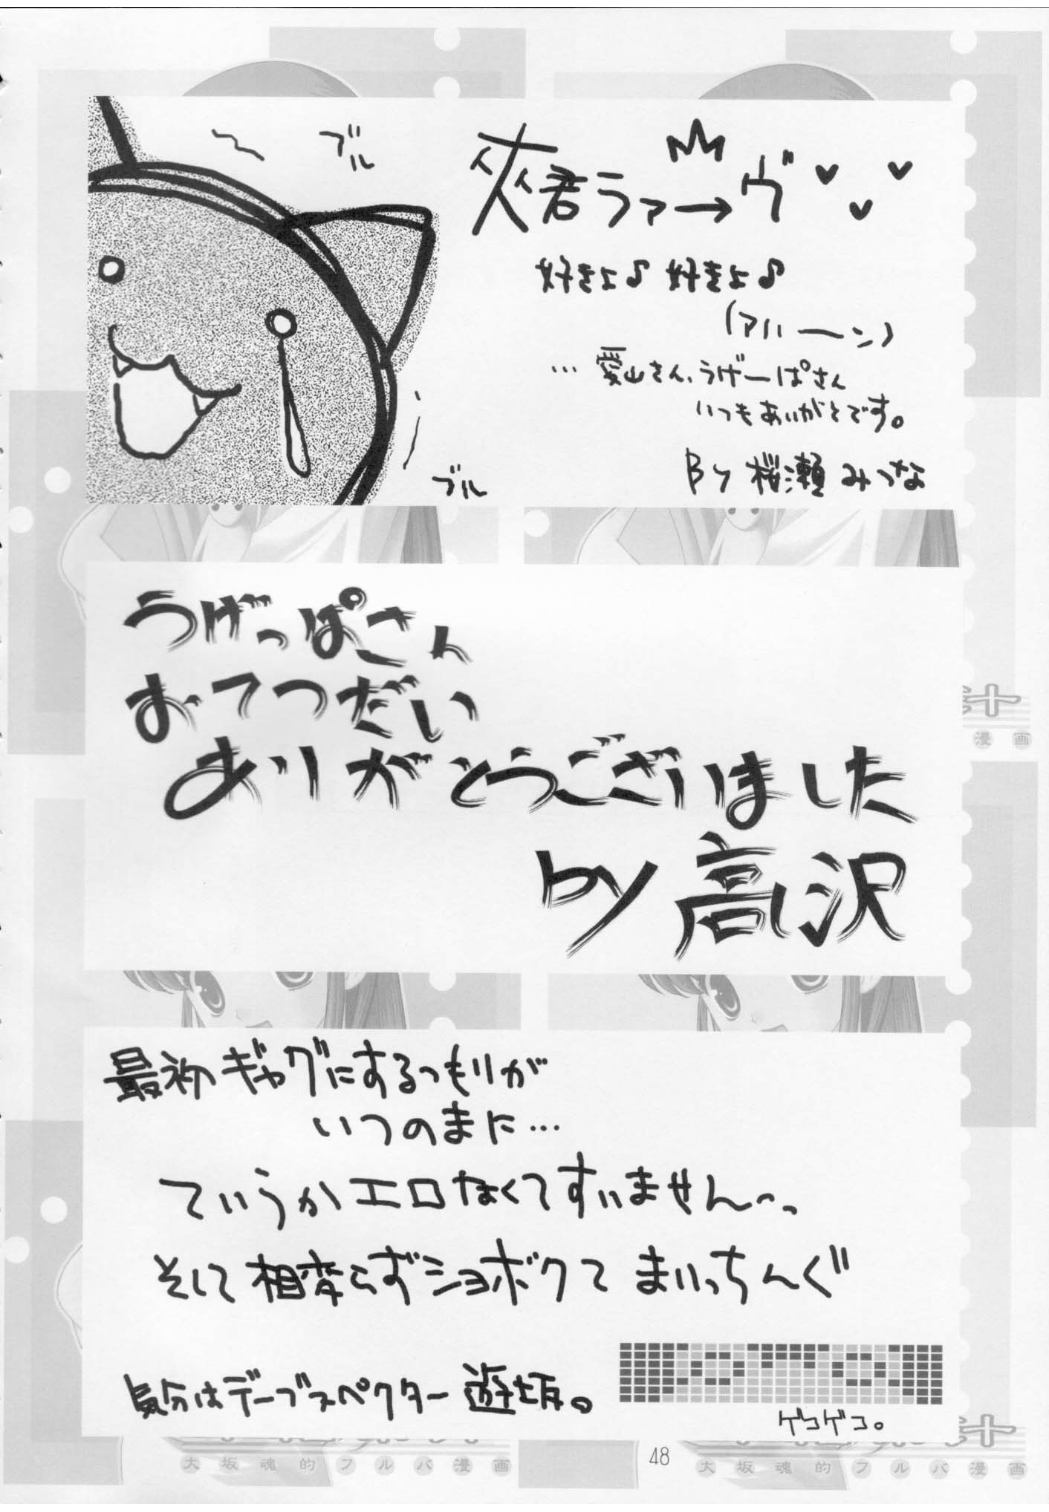 ブル
夾君ラァ→ヴ
好きよ♪ 好きよ♪
(アハーン)
… 愛山さん、うげーぱさん
いつもありがとです。
By 桜瀬 みつな
ブル
うげっぱさん
おてつだい
ありがとうございました
by 高沢
漫画
最初ギャグにするつもりが
いつのまに…
ていうかエロなくてすいません〜っ
そして相変らずショボクて まいっちんぐ
気分はデーブスペクター 遊坂。
ゲコゲコ。
48
大坂魂的フルバ漫画
大坂魂的フルバ漫画